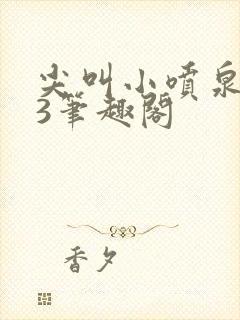 尖叫小喷泉
3笔趣阁
香夕